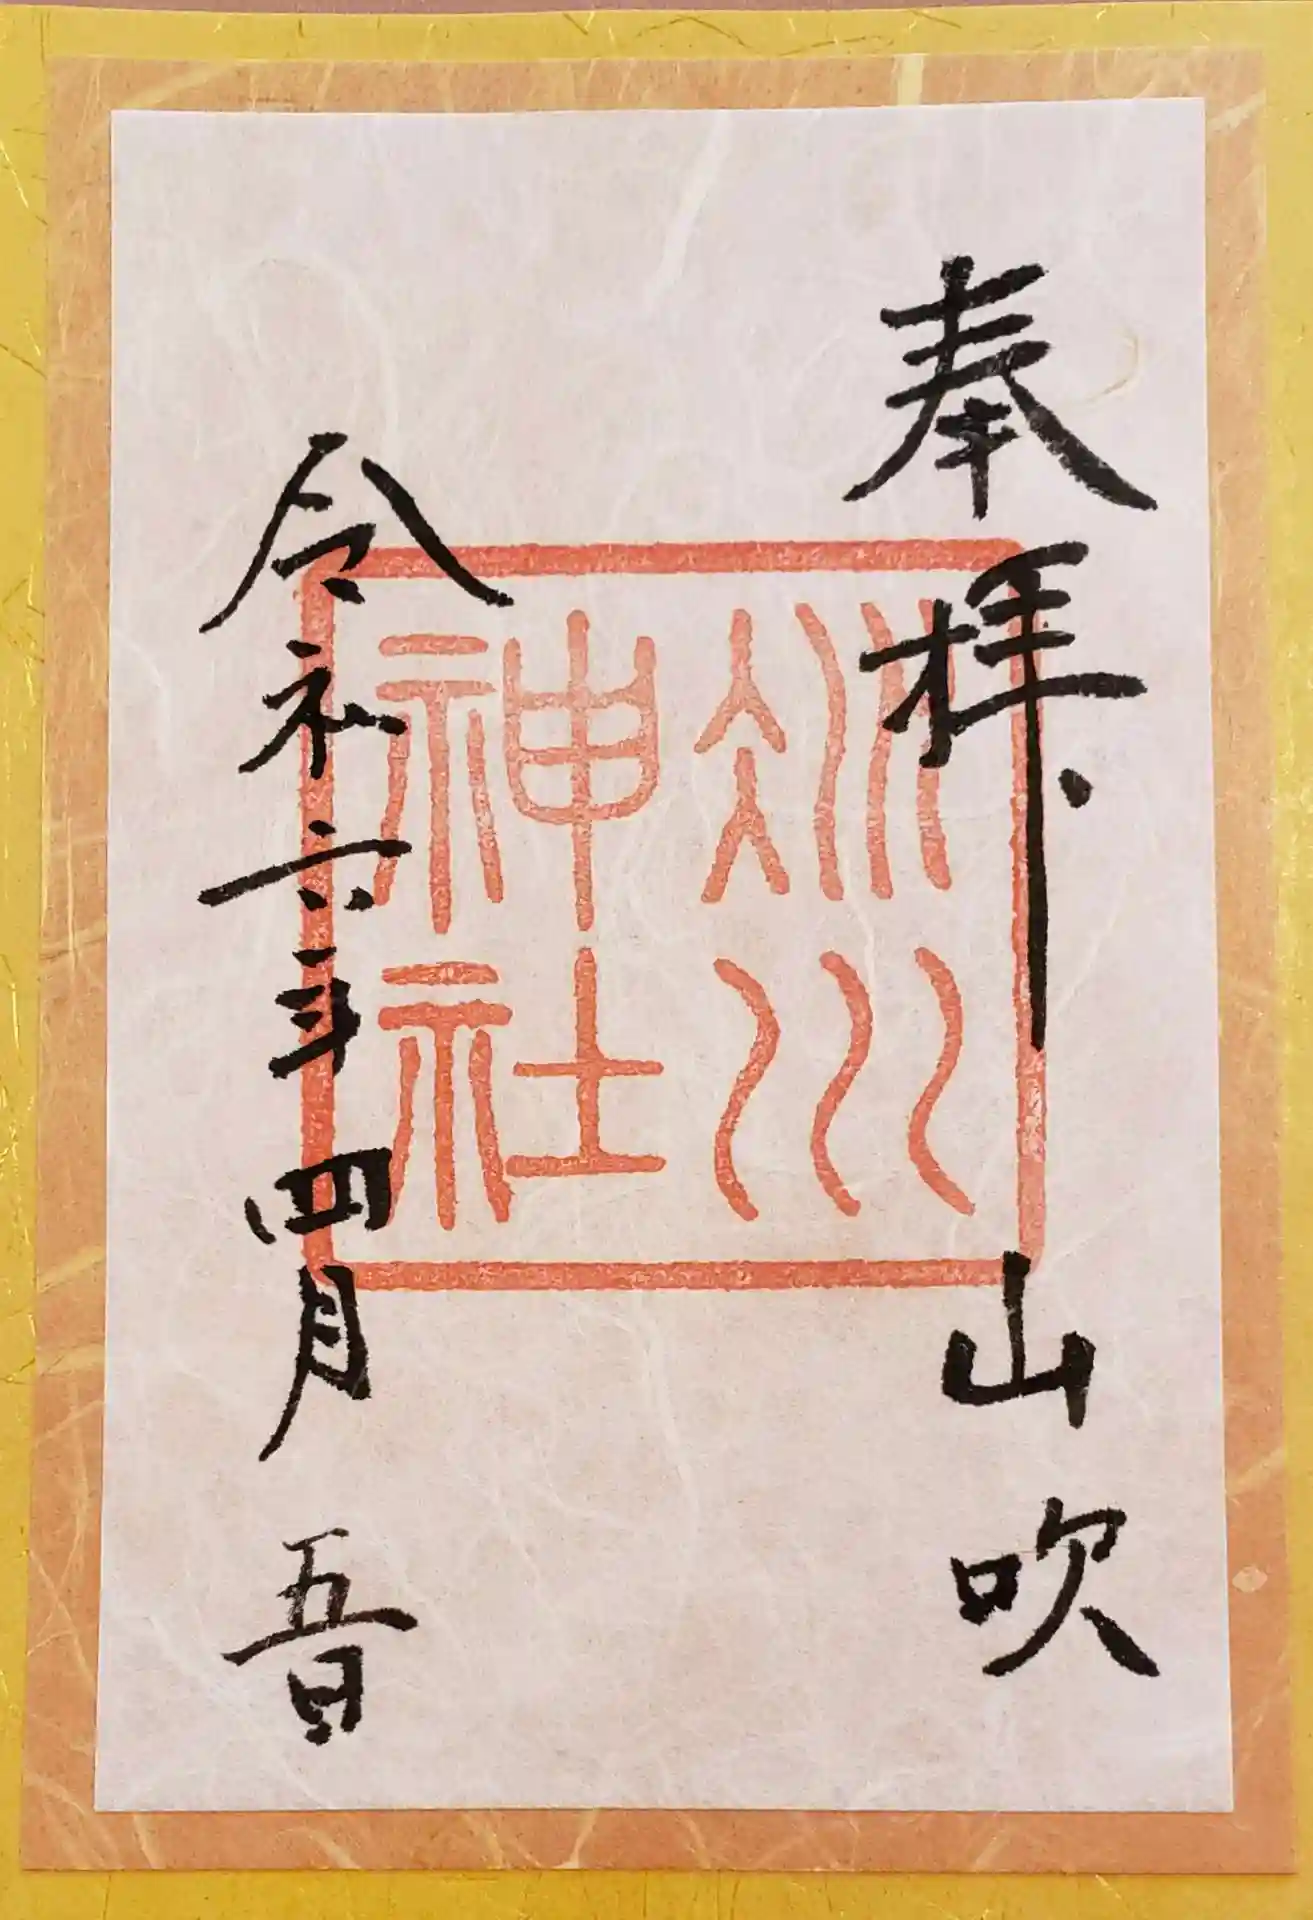 奉拝 山吹
冰川
神社
令和六年四月五日